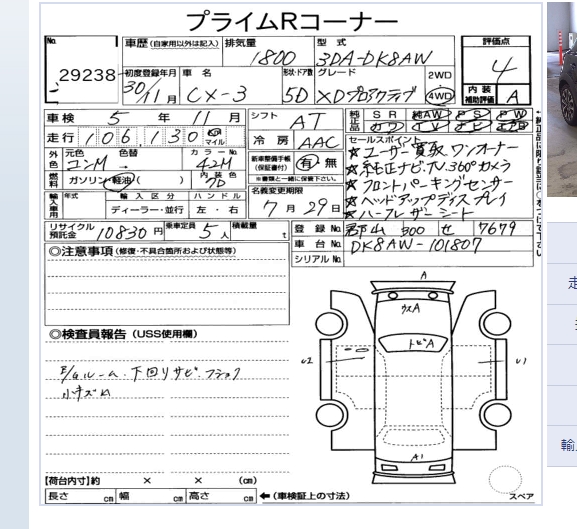 プライムRコーナー
No. 29238
車歴 (自家用以外は記入) 排気量 1800 型式 3DA-DK8AW
評価点 4
初度登録年月 30/11月 車名 CX-3 形状・ドア数 5D グレード XDプロアクティブ 2WD 4WD
内装補助評価 A
車検 5年 11月 シフト AT
純正品 SR 純AW PS PW
カワ TV ナビ エアB
走行 106,130 km マイル 冷房 AAC
外色 元色 コンM 色替 → カラーNo. 42M
燃料 ガソリン・軽油・( ) 内装色
新車整備手帳(保証書付) 有 無
※書類と一緒に保管下さい。
セールスポイント
☆ユーザー買取 ワンオーナー
☆純正ナビ.TV.360°カメラ
☆フロントパーキングセンサー
☆ヘッドアップディスプレイ
☆ハーフレザーシート
輸入車用 年式 輸入区分 ディーラー・並行 ハンドル 左・右
名義変更期限 7月29日
リサイクル預託金 10830円 乗車定員 5人 積載量 t
登録No. 郡山 300 せ 7679
車台No. DK8AW-101807
シリアルNo.
◎注意事項 (修復・不具合箇所および状態等)
◎検査員報告 (USS使用欄)
E/Gルーム・下回りサビ
小キズ
A
ウスA
トビA
U2
U1
A1
【荷台内寸】約 × × (cm)
長さ cm 幅 cm 高さ cm ←(車検証上の寸法)
スペア
走
輸